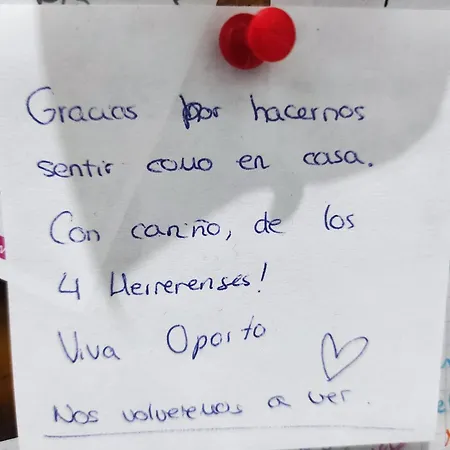 Gracias por hacernos
sentir como en casa.
Con cariño, de los
4 Herrerenses!
Viva Oporto
Nos volveremos a ver.